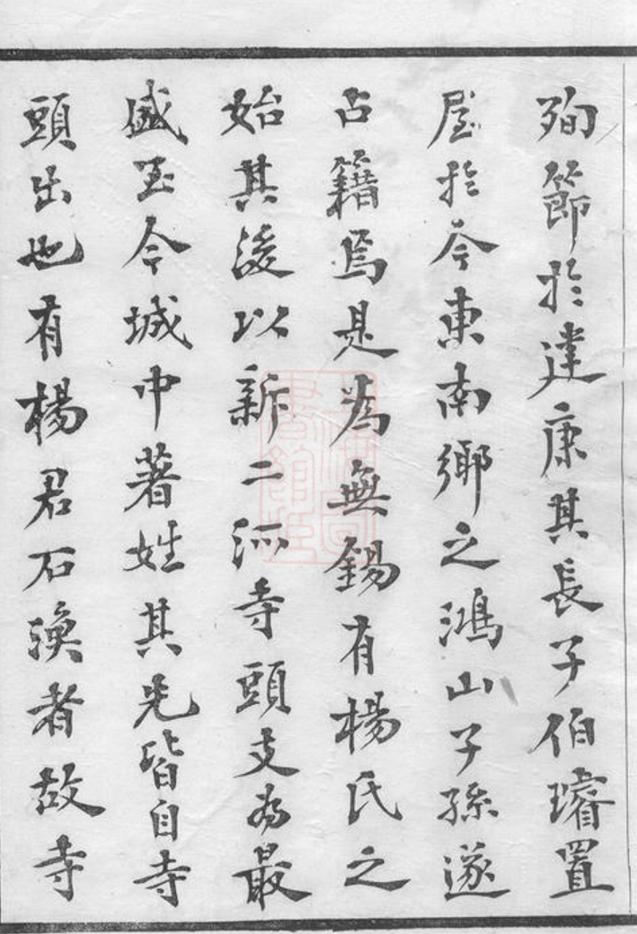 殉節於建康其長子伯璿置
屋於今東南鄉之鴻山子孫遂
占籍焉是為無錫有楊氏之
始其後以新二派寺頭支为最
盛至今城中著姓其先皆自寺
頭出也有楊君石漁者故寺